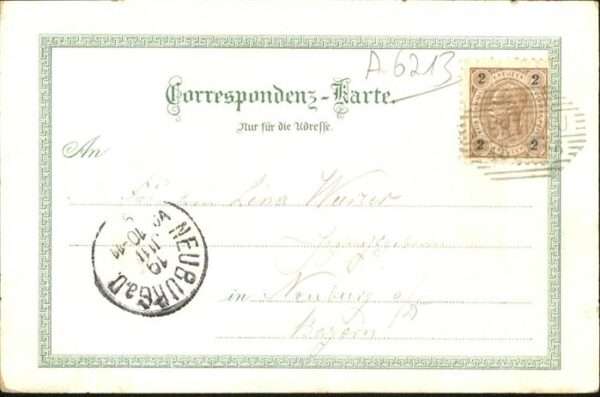 A 6213
Correspondenz-Karte.
Nur für die Adresse.
2 2
2 2
An
Fräulein Lina Wurzer
in Neuburg a/D
Bayern
NEUBURG a.D.
19
JUL
10-11